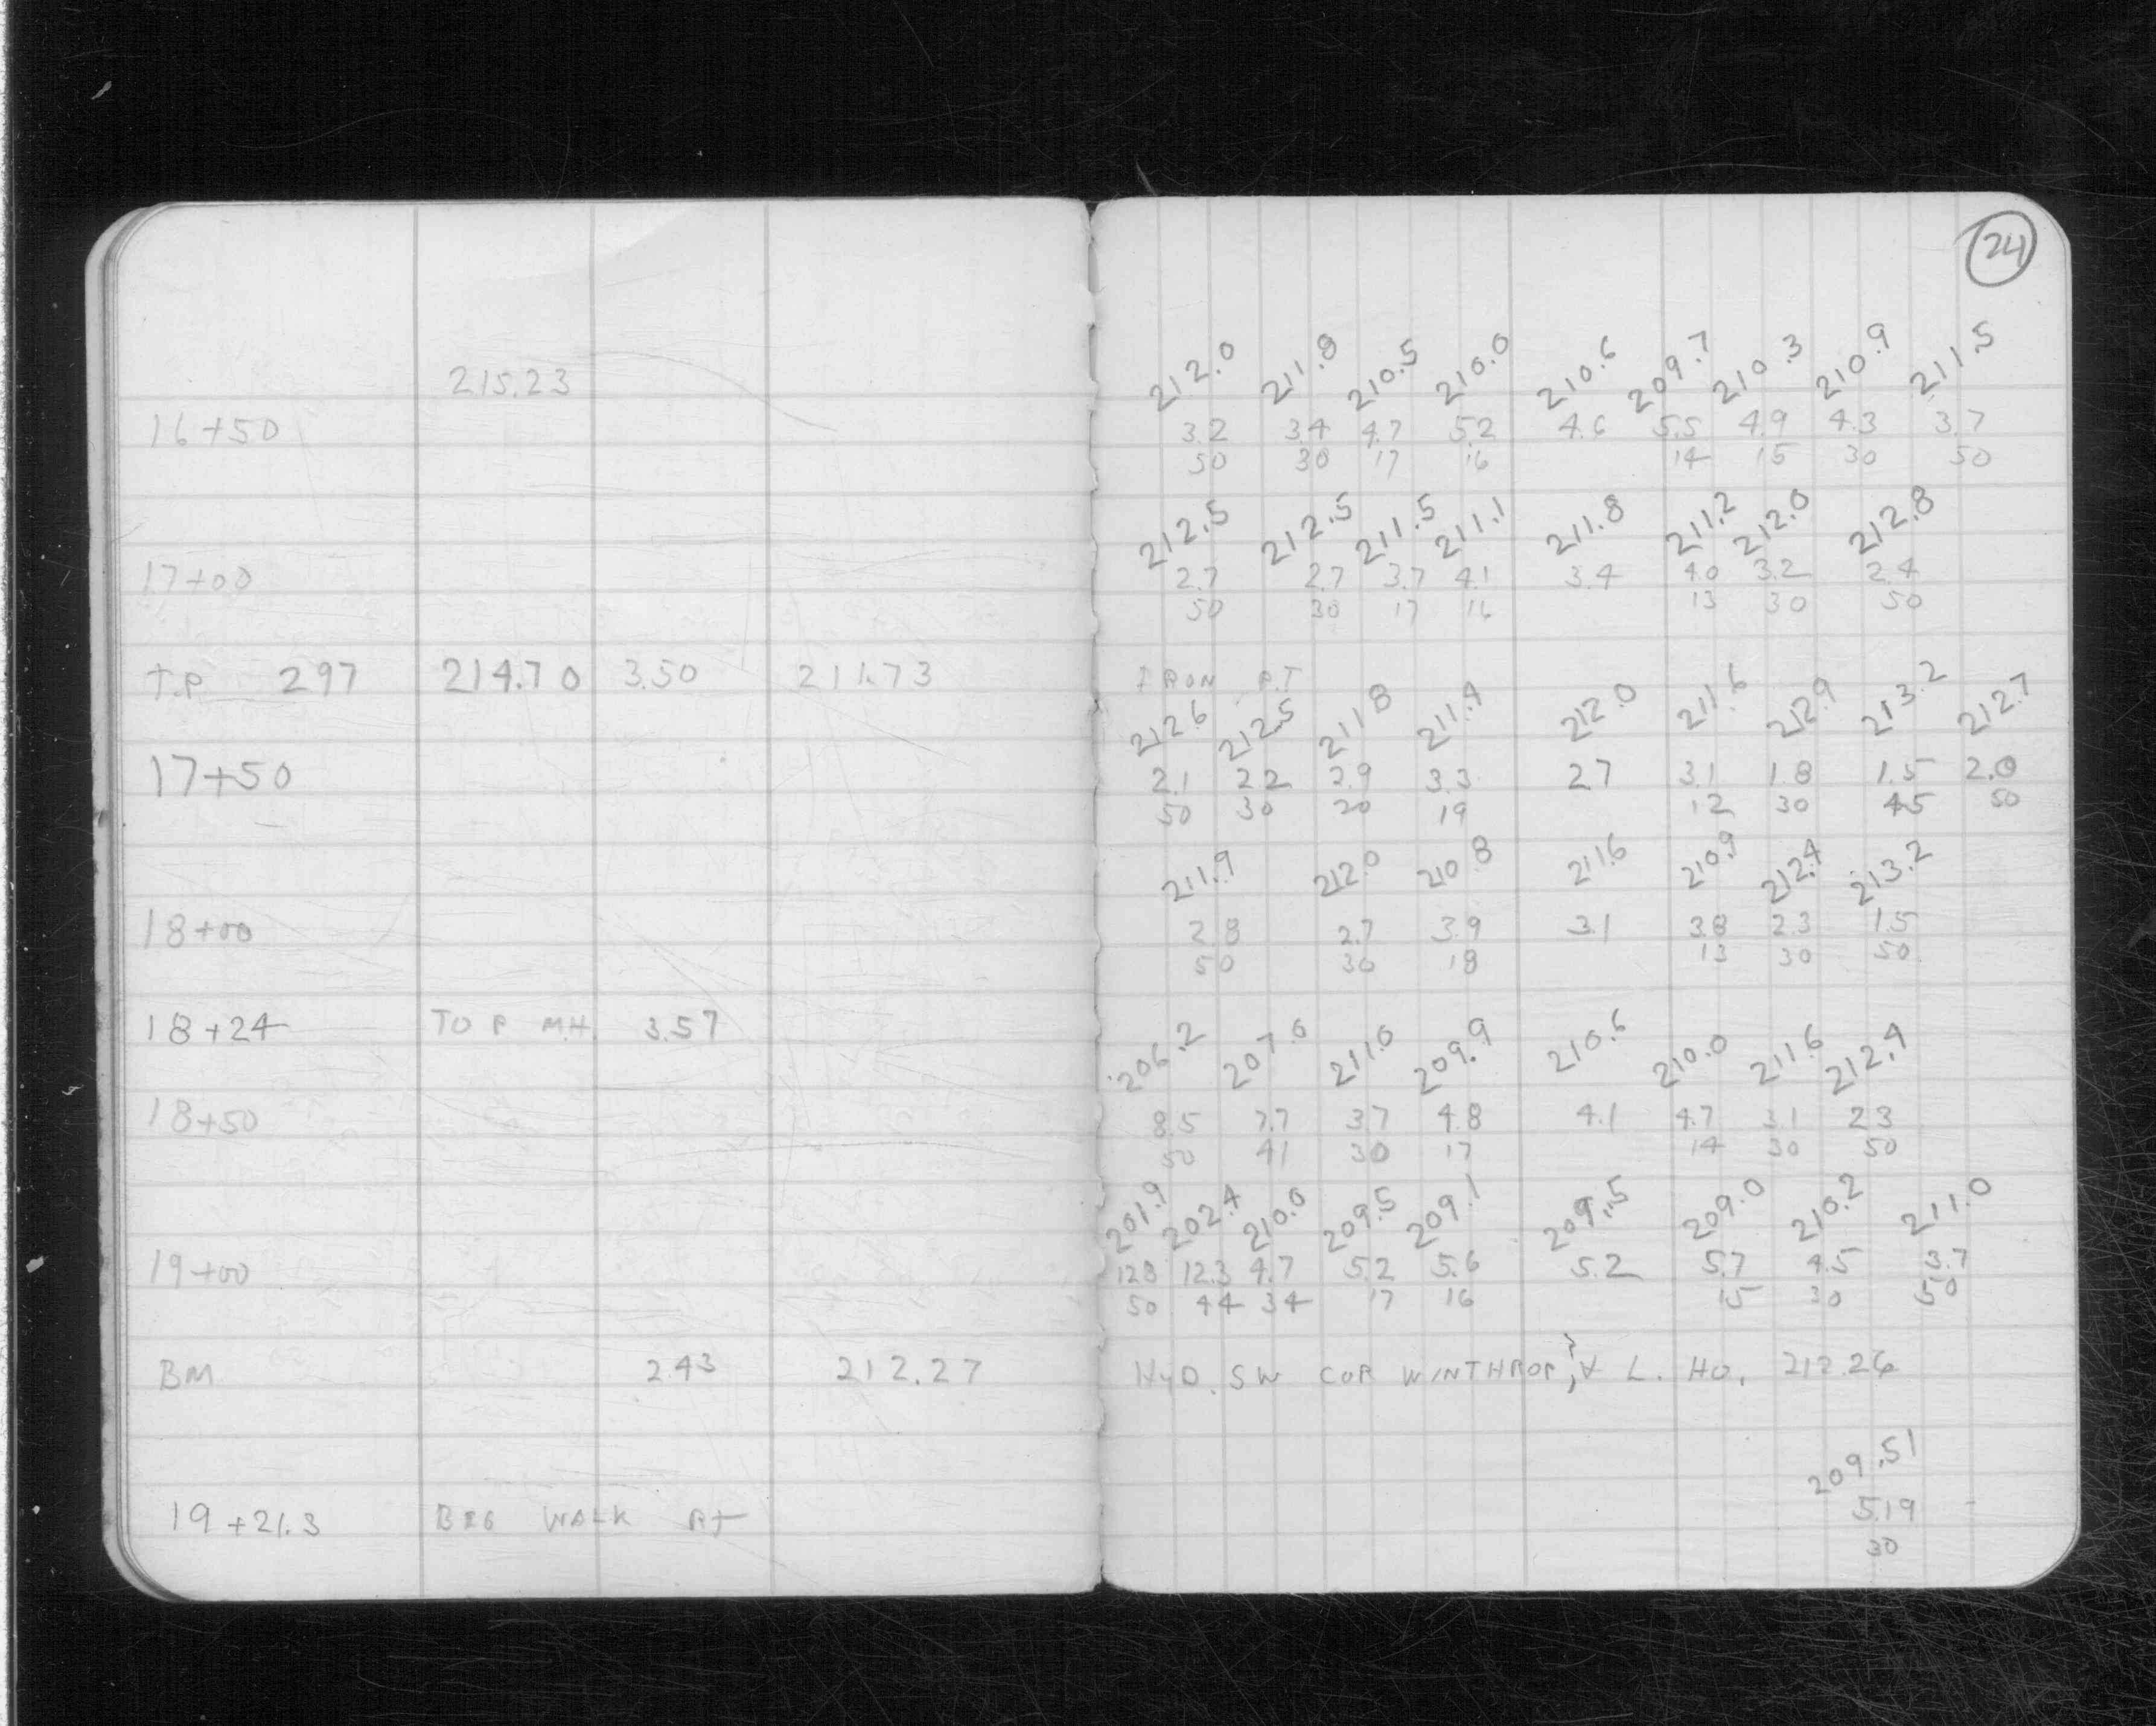 24
215.23
212.0 211.8 210.5 210.0 210.6 209.7 210.3 210.9 211.5
16+50 3.2 3.4 4.7 5.2 4.6 5.5 4.9 4.3 3.7
50 30 17 16 14 15 30 50
212.5 212.5 211.5 211.1 211.8 211.2 212.0 212.8
17+00 2.7 2.7 3.7 4.1 3.4 4.0 3.2 2.4
50 30 17 16 13 30 50
T.P 297 214.70 3.50 211.73 IRON P.T
212.6 212.5 211.8 211.4 212.0 211.6 212.9 213.2 212.7
17+50 2.1 2.2 2.9 3.3 2.7 3.1 1.8 1.5 2.0
50 30 20 19 12 30 45 50
211.9 212.0 210.8 211.6 210.9 212.4 213.2
18+00 2.8 2.7 3.9 3.1 3.8 2.3 1.5
50 30 18 13 30 50
18+24 TOP MH. 3.57
206.2 207.0 211.0 209.9 210.6 210.0 211.6 212.4
18+50 8.5 7.7 3.7 4.8 4.1 4.7 3.1 2.3
50 41 30 17 14 30 50
201.9 202.4 210.0 209.5 209.1 209.5 209.0 210.2 211.0
19+00 12.8 12.3 4.7 5.2 5.6 5.2 5.7 4.5 3.7
50 44 34 17 16 15 30 50
BM 2.43 212.27 HYD. SW COR WINTHROP, L. HO. 212.26
209.51
19+21.3 BEG WALK RT 5.19
30